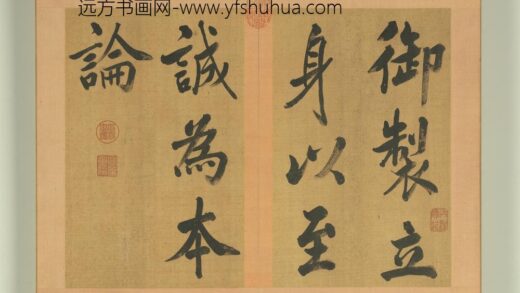 远方书画网-www.yfshuhua.com
御製立
身以至
誠為本
論